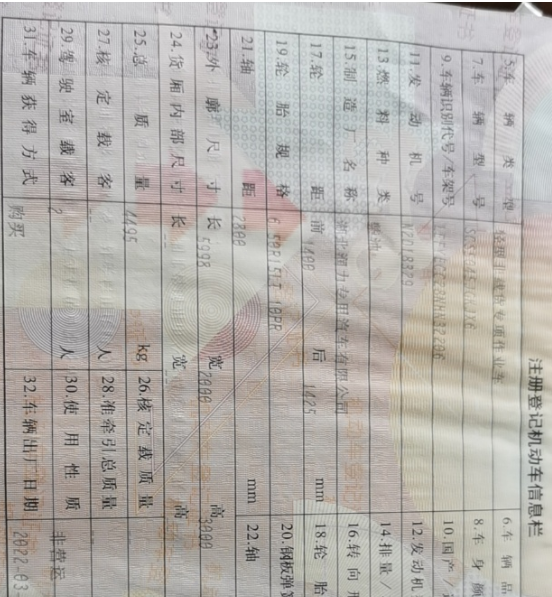 注册登记机动车信息栏
5.车辆类型 轻型非载货专项作业车 6.车辆品
7.车辆型号 8.车身颜
9.车辆识别代号/车架号 10.国产/
11.发动机号 12.发动机
13.燃料种类 柴油 14.排量/
15.制造厂名称 力专用汽车有限公司 16.转向形
17.轮距 前 1400 后 1425 mm 18.轮胎
19.轮胎规格 6.50R15LT 10PR 20.钢板弹簧
21.轴距 2800 mm 22.轴
23.外廓尺寸 长 5998 宽 2000 高 3000
24.货厢内部尺寸 长 宽 高
25.总质量 4495 kg 26.核定载质量
27.核定载客 人 28.准牵引总质量
29.驾驶室载客 2 人 30.使用性质 非营运
31.车辆获得方式 购买 32.车辆出厂日期 2022-03